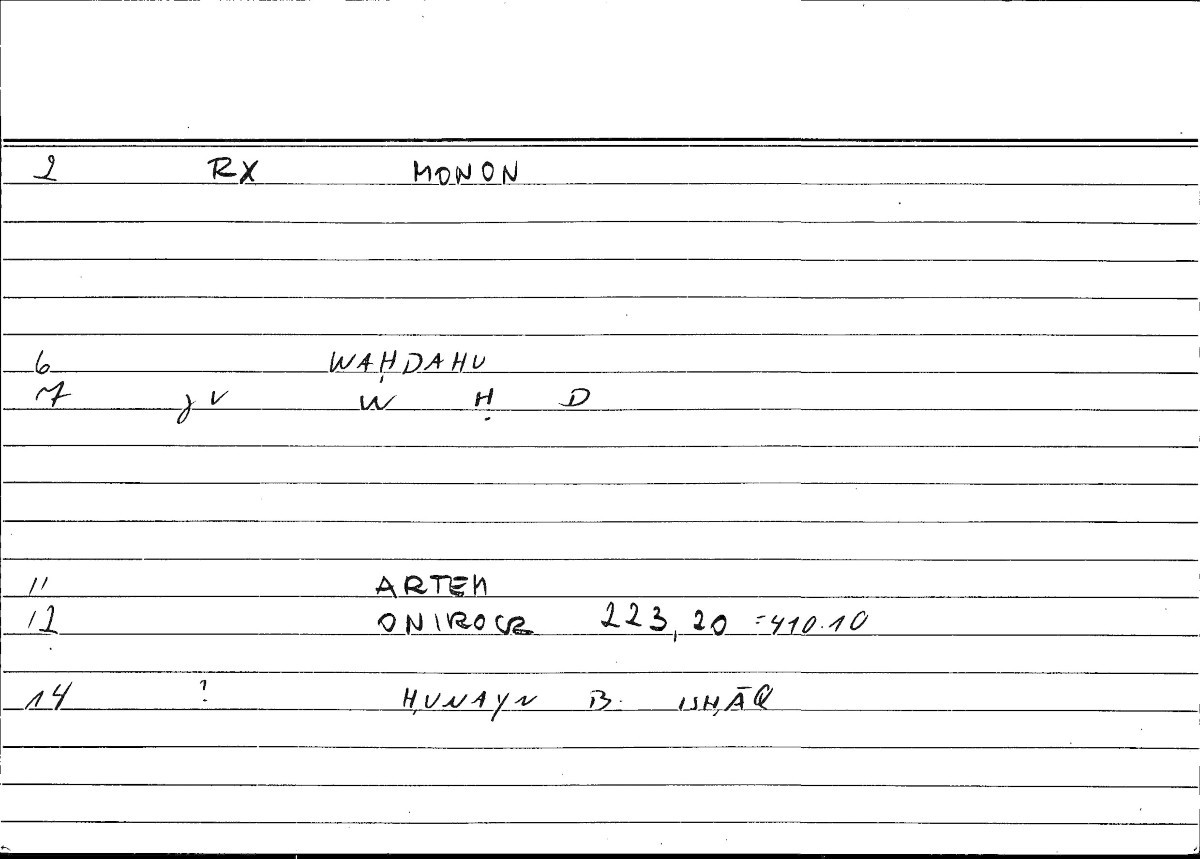 2 RX MONON
6 WAḤDAHU
7 jv W Ḥ D
11 ARTEM
12 ONIROCR 223,20 =410.10
14 ? ḤUNAYN B. ISḤĀQ